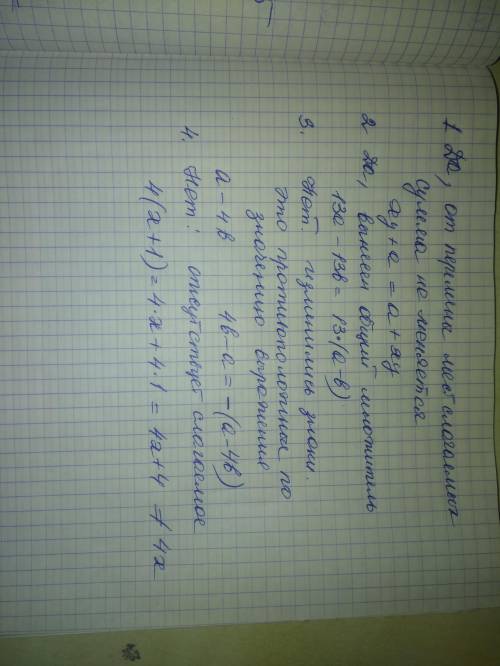 1 Да, от перемены мест слагаемых
сумма не меняется
xy + a = a + xy
2 Да, вынесем общий множитель
13a - 13b = 13·(a - b)
3. Нет изменились знаки.
это противоположные по
значению выражения
a - 4b 4b - a = - (a - 4b)
4. Нет: отсутствует слагаемое
4(x + 1) = 4·x + 4·1 = 4a + 4 ≠ 4x